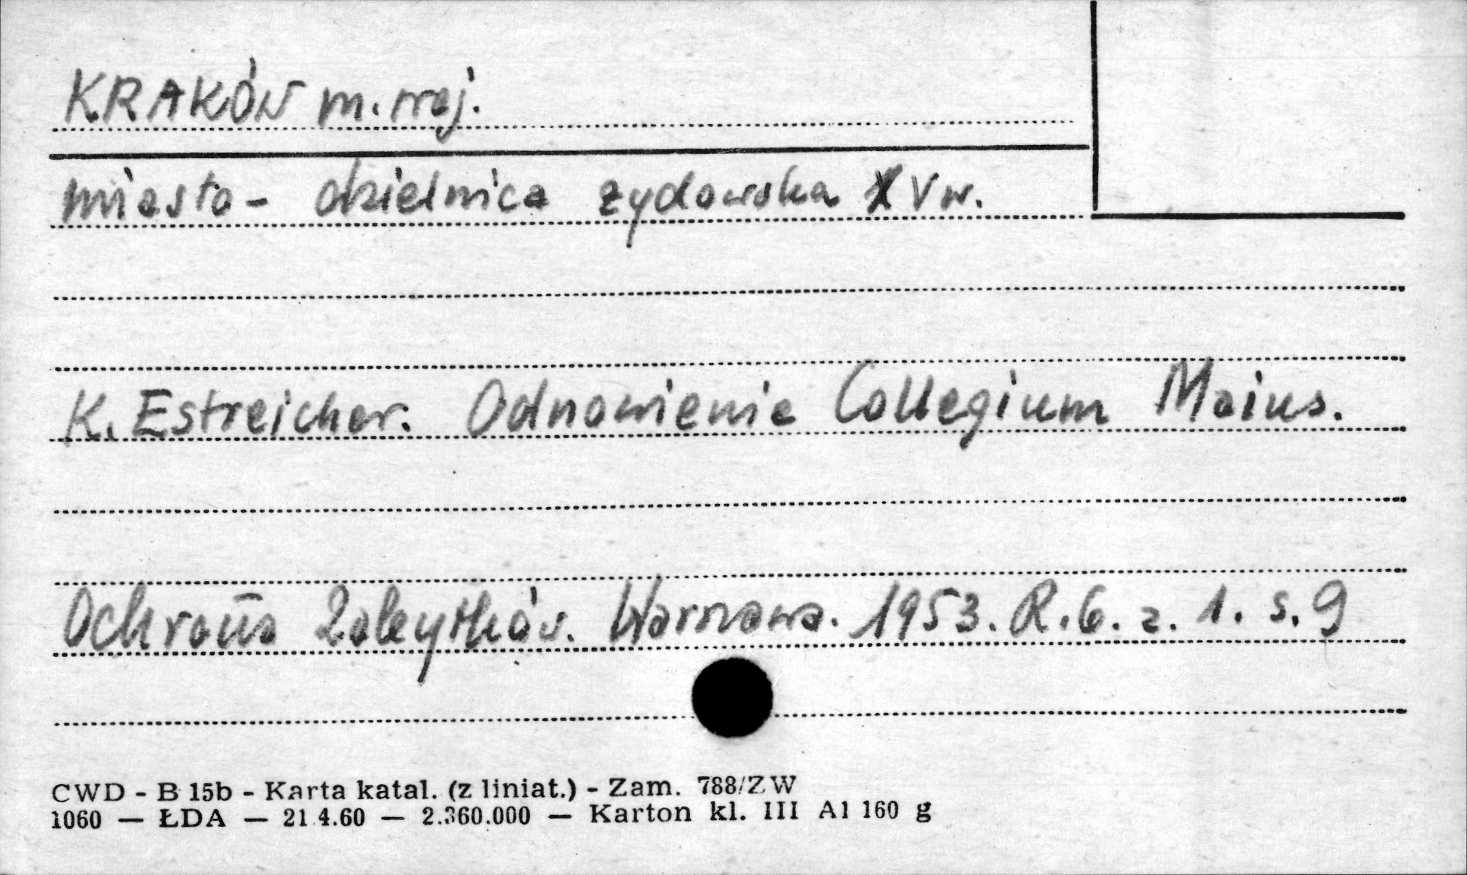 KRAKÓW m. woj.
miasto - dzielnica żydowska XV w.
K. Estreicher: Odnowienie Collegium Maius.
Ochrona Zabytków. Warszawa. 1953. R.6. z. 1. s. 9
CWD - B 15b - Karta katal. (z liniat.) - Zam. 788/ZW
1060 — ŁDA — 21.4.60 — 2.360.000 — Karton kl. III A1 160 g